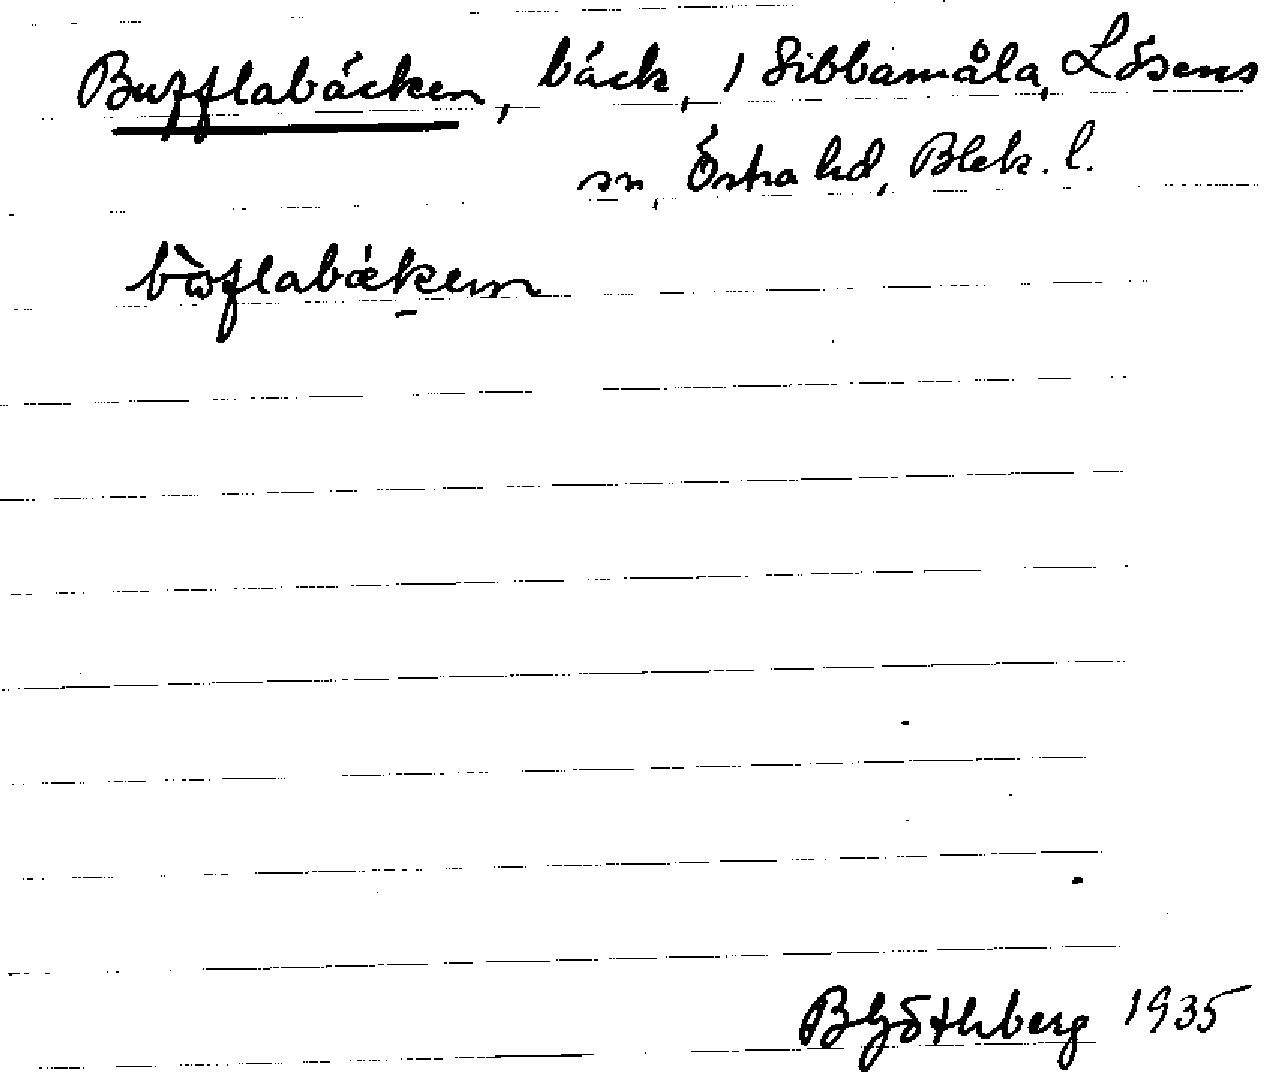 Bufflabäcken, bäck, i Sibbamåla, Lösens
sn, Östra hd, Blek. l.
bòflabækem
BGöthberg 1935